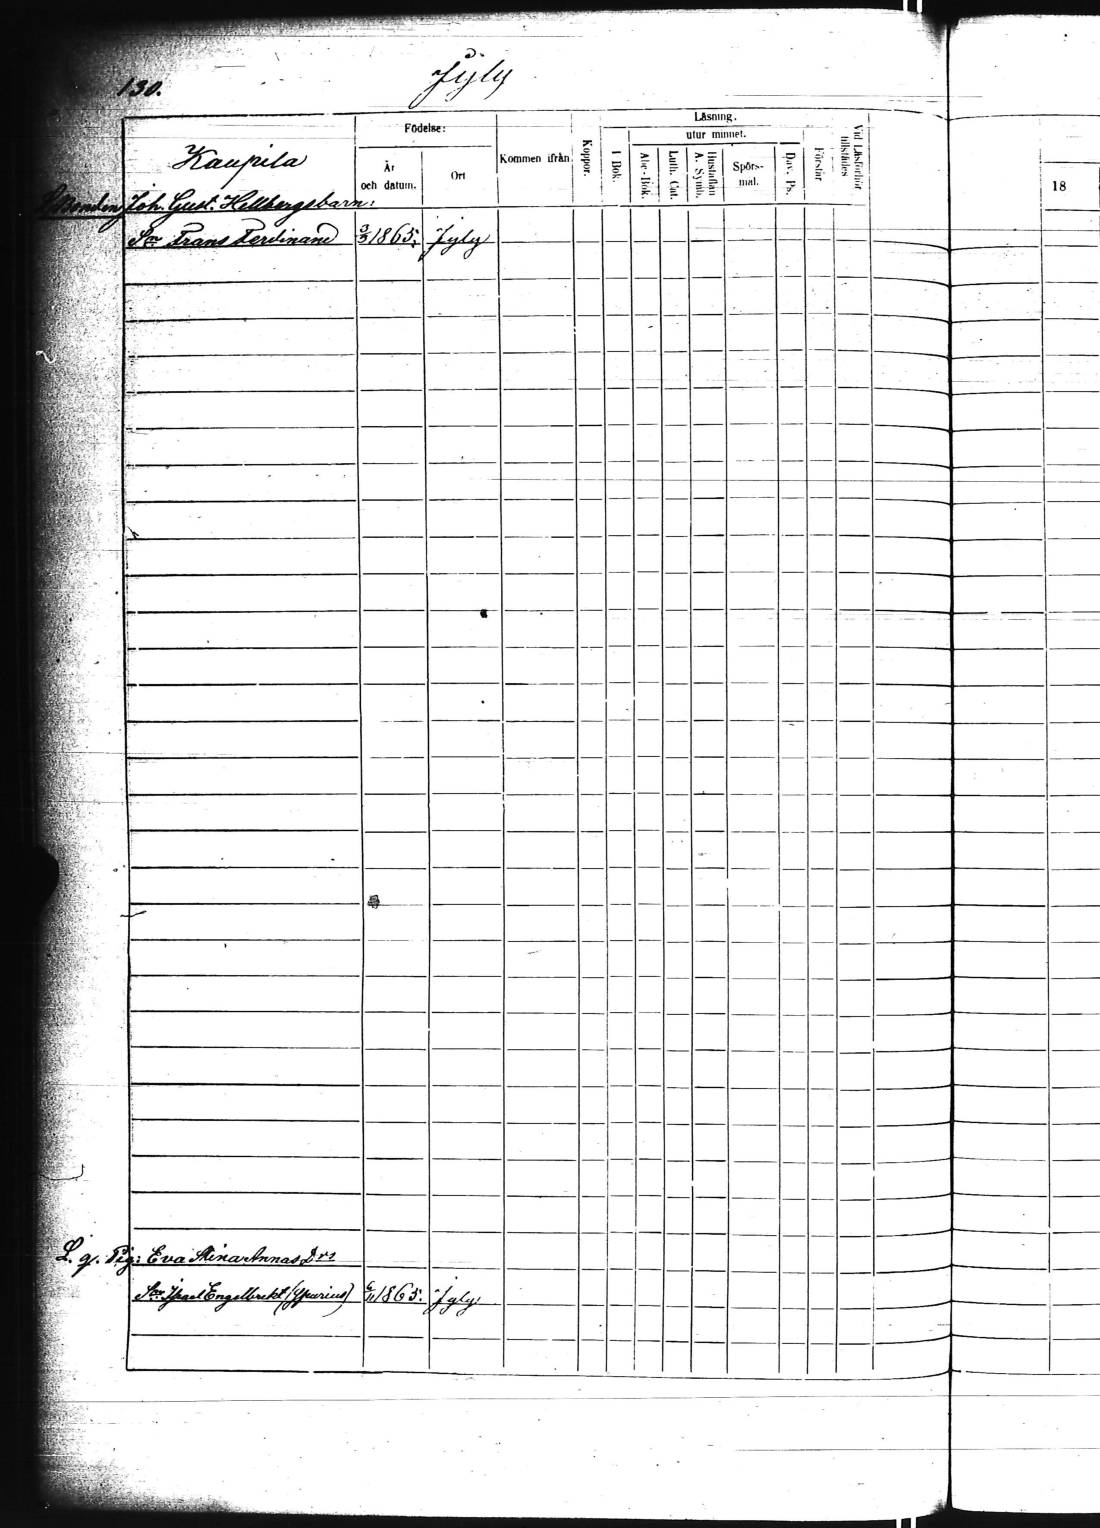 130.
Jyly
Kaupila
Födelse:
År och datum.
Ort
Kommen ifrån
Koppor.
Läsning.
I Bok.
utur minnet.
Abc-Bok.
Luth. Cat.
Hustaflan A. Symb.
Spörs-mal.
Dav. Ps.
Förstår
Vid Läsförhör tillstädes
18
Joh. Gust. Hellbergsbarn:
Son Frans Ferdinand 3/3 1865. Jyly
L. g. Pig: Eva Stina Annas Drs
Son Engelbrekt (Spurius) 6/11 1865. Jyly